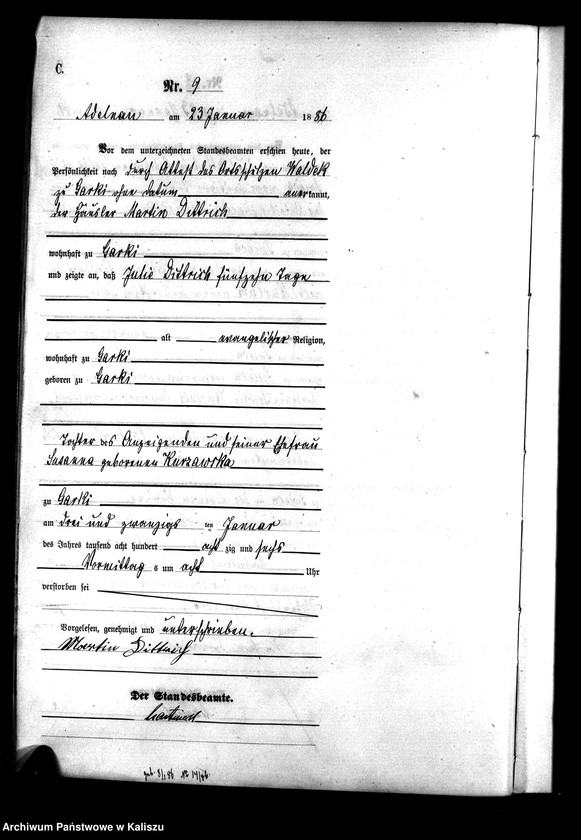 C.
Nr. 9
Adelnau am 23 Januar 1886
Vor dem unterzeichneten Standesbeamten erschien heute, der
Persönlichkeit nach durch Attest des Ortsschulzen Waldek
zu Garki ohne Datum anerkannt,
der Häusler Martin Dittrich
wohnhaft zu Garki
und zeigte an, daß Julie Dittrich fünfzehn Tage
alt evangelischer Religion,
wohnhaft zu Garki
geboren zu Garki
Tochter des Anzeigenden und seiner Ehefrau
Susanna geborenen Kurzawska
zu Garki
am drei und zwanzigs ten Januar
des Jahres tausend acht hundert acht zig und sechs
Vormittag s um acht Uhr
verstorben sei
Vorgelesen, genehmigt und unterschrieben.
Martin Dittrich
Der Standesbeamte.
geb. 8/1 86 No 14/86
Archiwum Państwowe w Kaliszu